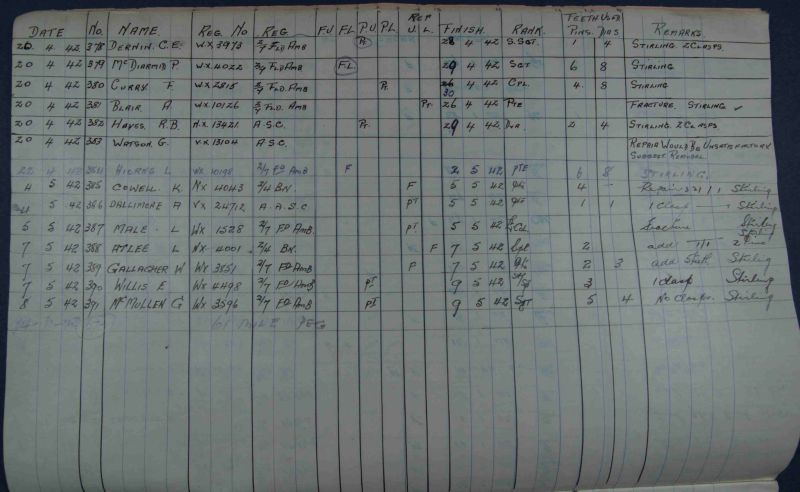 REP TEETH USED
DATE No. NAME REG. No REG FU FL PU PL U. L. FINISH. RANK. PINS. DIAS REMARKS.
20 4 42 378 DERNIN. C.E. WX 3973 2/7 FLD AMB 28 4 42 S.SGT. 1 4 STIRLING. 2 CLASPS
20 4 42 379 McDIARMID P. WX 4022 2/7 FLD AMB FL 29 4 42 SGT 6 8 STIRLING
20 4 42 380 CURRY. F WX 2815 2/7 FLD. AMB Pr. 30 4 42 CPL. 4. 8 STIRLING
20 4 42 381 BLAIR A WX 10126 2/7 FLD. AMB Pr. 26 4 42 PTE FRACTURE. STIRLING ✓
20 4 42 382 HAYES. R.B. NX 13421 A.S.C. Pr. 29 4 42 DVR. 2 4 STIRLING. 2 CLASPS
20 4 42 383 WATSON. G. VX 13104 A.S.C. REPAIR WOULD BE UNSATISFACTORY
SUGGEST REMODEL
42 384 L WX 10198 2/7 FD AMB F 2 5 42 PTE 6 8 STIRLING.
4 5 42 385 COWELL K NX 4043 2/4 BN. F 5 5 42 4 - Stirling
5 42 386 DALLIMORE A VX 24712 A.A.S.C PT 5 5 42 1 1 1 Clasp Stirling
5 5 42 387 MALE. L WX 1528 2/7 FD AMB. PT 5 5 42 Cpl. Fracture Stirling
7 5 42 388 ATLEE L NX 4001 2/4 BN. F 7 5 42 2 add
7 5 42 389 GALLAGHER W WX 3851 2/7 FD AMB F 7 5 42 2 3 add Stirling
7 5 42 390 WILLIS E WX 4498 2/7 FD AMB PT 9 5 42 3 1 clasp Stirling
8 5 42 391 McMULLEN G WX 3596 2/7 FD AMB PT 9 5 42 SGT 5 4 No Clasps. Stirling